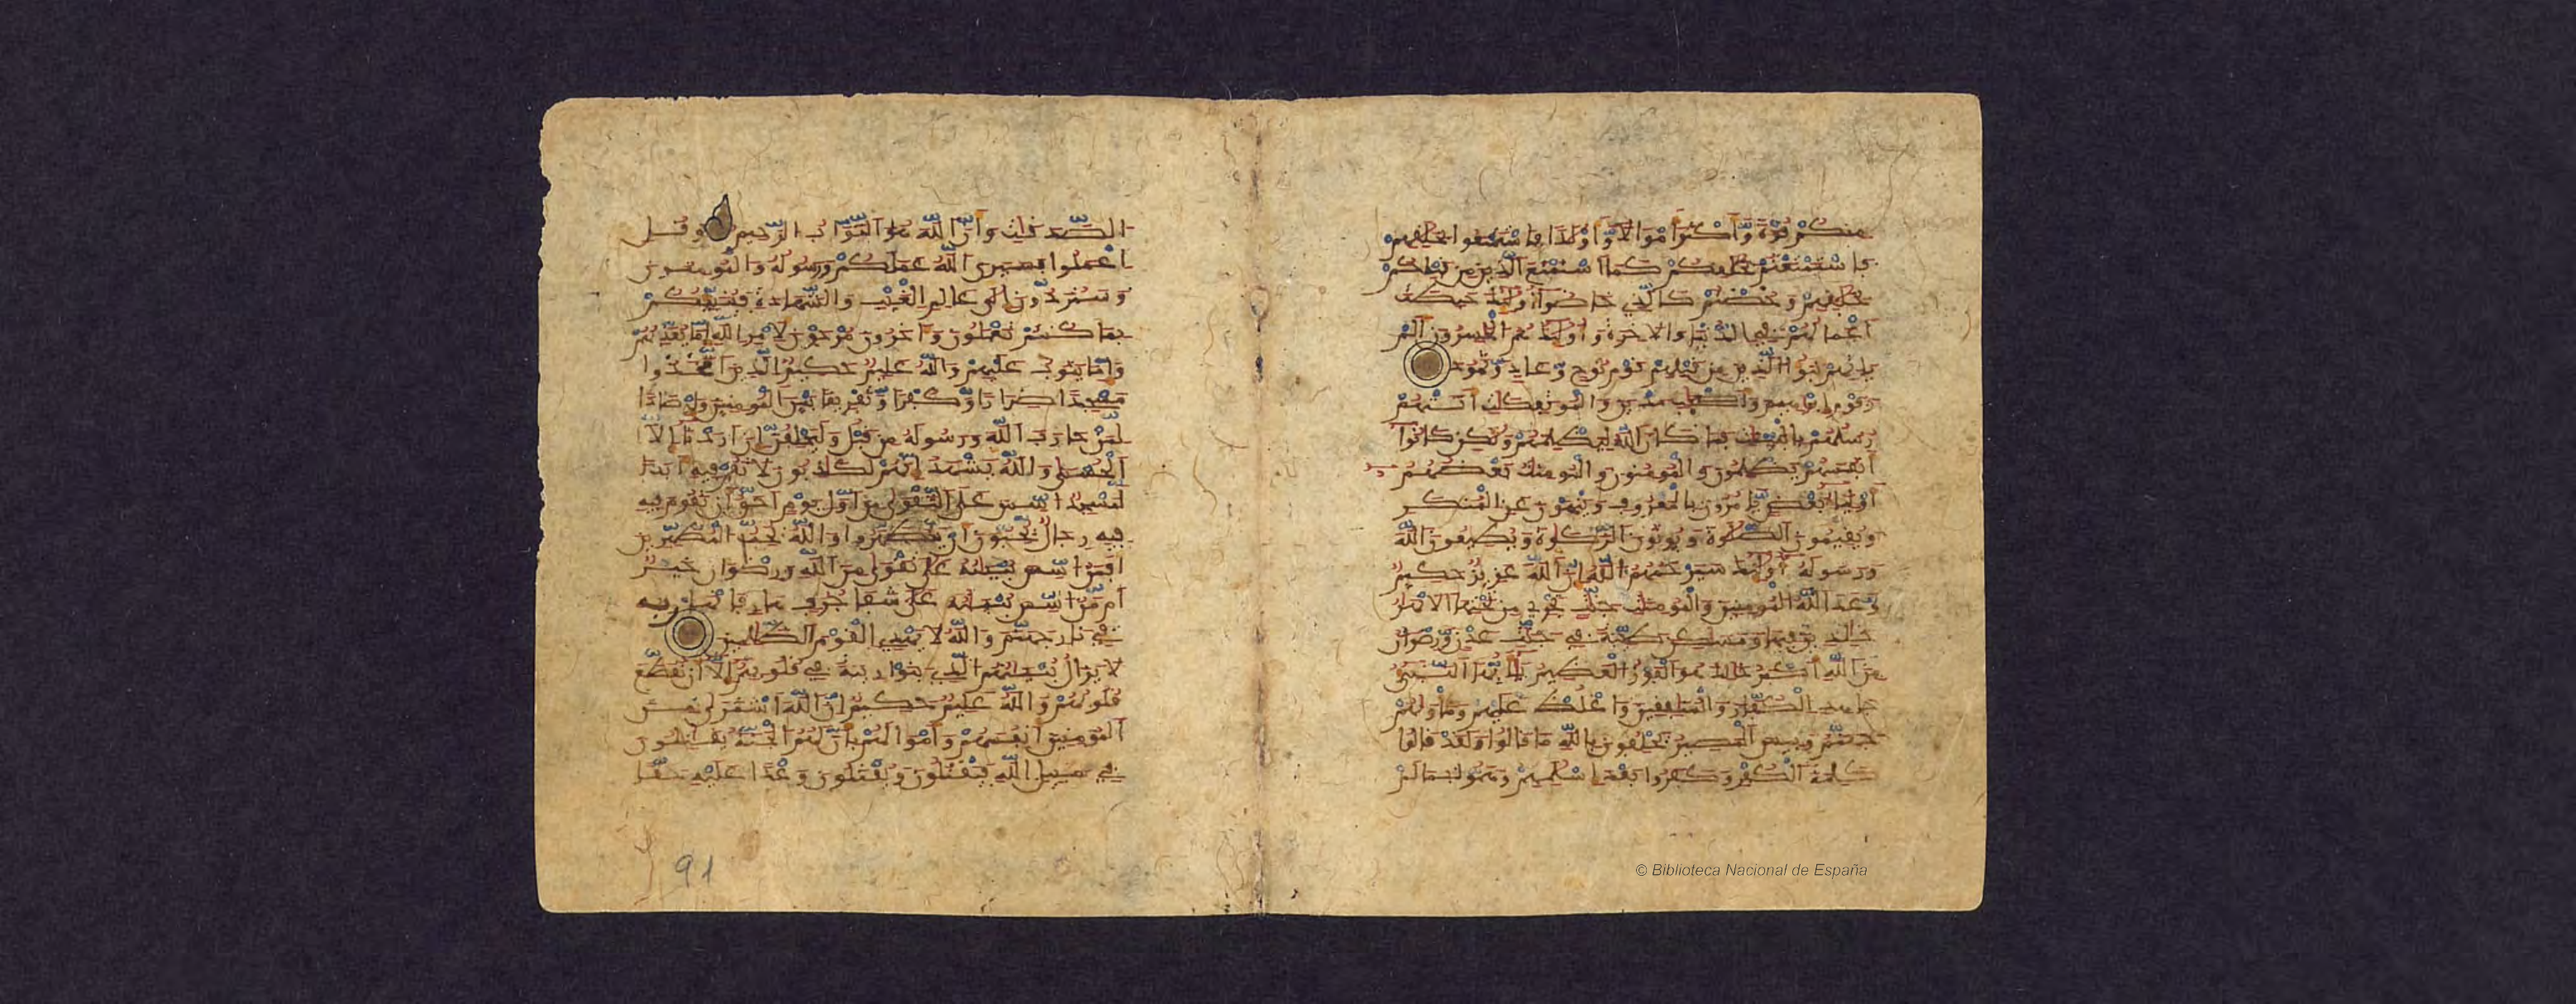 منكم قوة واكثر امولا واولدا فاستمتعوا بخلفهم
فاستمتعتم بخلفكم كما استمتع الذين من قبلكم
بخلفهم وخضتم كالذي خاضوا اولىك حبطت
اعملهم في الدنيا والاخرة واولىك هم الخسرون الم
ياتهم نبؤا الذين من قبلهم قوم نوح وعاد وثمود
وقوم ابرهيم واصحب مدين والموتفكت اتتهم
رسلهم بالبينت فما كان الله ليظلمهم ولكن كانوا
انفسهم يظلمون والمومنون والمومنت بعضهم
اوليا بعض يامرون بالمعروف وينهون عن المنكر
ويقيمون الصلوة ويوتون الزكوة ويطيعون الله
ورسوله اولىك سيرحمهم الله ان الله عزيز حكيم
وعد الله المومنين والمومنت جنت تجري من تحتها الانهر
خلدين فيها ومسكن طيبة في جنت عدن ورضون
من الله اكبر ذلك هو الفوز العظيم يايها النبي
جهد الكفار والمنفقين واغلظ عليهم وماويهم
جهنم وبيس المصير يحلفون بالله ما قالوا ولقد قالوا
كلمة الكفر وكفروا بعد اسلمهم وهموا بما لم
© Biblioteca Nacional de España
الصدقت وان الله هو التواب الرحيم وقل
اعملوا فسيرى الله عملكم ورسوله والمومنون
وستردون الى علم الغيب والشهدة فينبيكم
بما كنتم تعملون واخرون مرجون لامر الله اما يعذبهم
واما يتوب عليهم والله عليم حكيم الذين اتخذوا
مسجدا ضرارا وكفرا وتفريقا بين المومنين وارصادا
لمن حارب الله ورسوله من قبل وليحلفن ان اردنا الا
الحسنى والله يشهد انهم لكذبون لا تقم فيه ابدا
لمسجد اسس على التقوى من اول يوم احق ان تقوم فيه
فيه رجال يحبون ان يتطهروا والله يحب المطهرين
افمن اسس بنينه على تقوى من الله ورضون خير
ام من اسس بنينه على شفا جرف هار فانهار به
في نار جهنم والله لا يهدي القوم الظلمين
لا يزال بنينهم الذي بنوا ريبة في قلوبهم الا ان تقطع
قلوبهم والله عليم حكيم ان الله اشترى من
المومنين انفسهم وامولهم بان لهم الجنة يقتلون
في سبيل الله فيقتلون ويقتلون وعدا عليه حقا
91